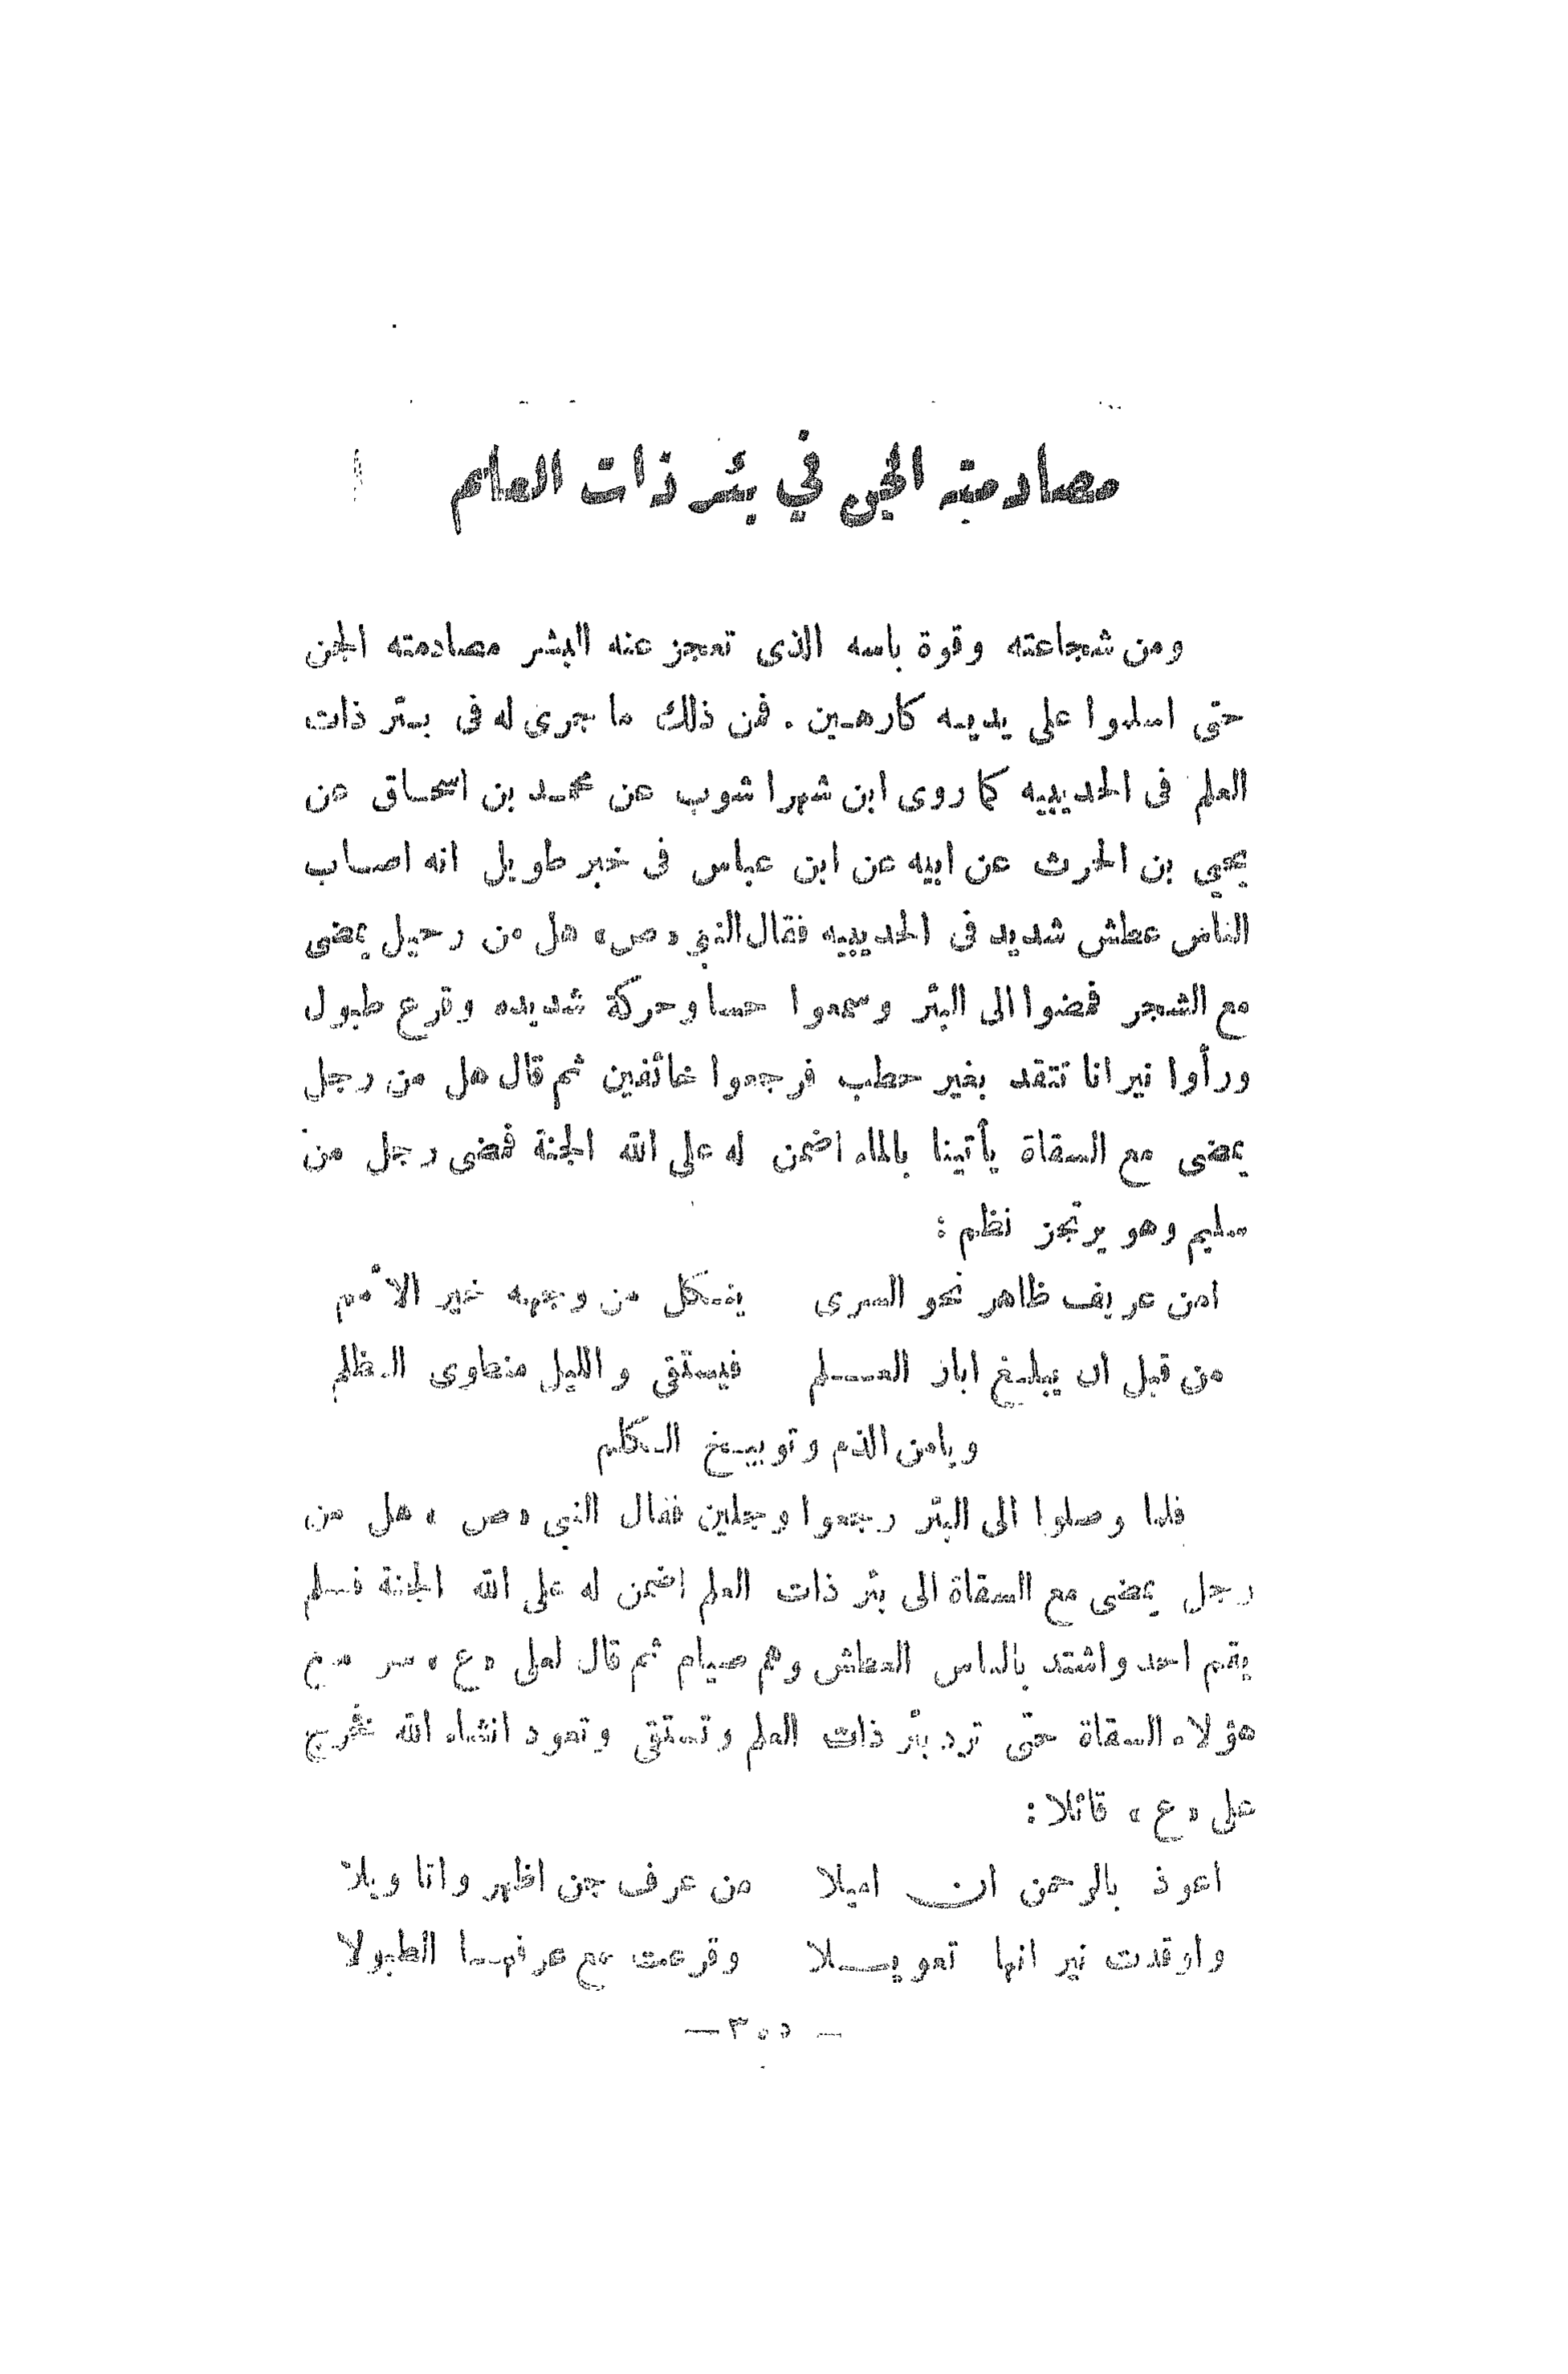 مصادمته الجن في بئر ذات العلم
ومن شجاعته وقوة باسه الذى تعجز عنه البشر مصادمته الجن
حتى اسلموا على يديه كارهين . فمن ذلك ما جرى له فى بئر ذات
العلم فى الحديبيه كما روى ابن شهراشوب عن محمد بن اسحاق عن
يحيي بن الحرث عن ابيه عن ابن عباس فى خبر طويل انه اصاب
الناس عطش شديد فى الحديبيه فقال النبي «ص» هل من رحيل يمضى
مع الشجر فمضوا الى البئر وسمعوا حسا وحركة شديده وقرع طبول
ورأوا نيرانا تتقد بغير حطب فرجعوا خائفين ثم قال هل من رجل
يمضى مع السقاة يأتينا بالماء اضمن له على الله الجنة فمضى رجل من
سليم وهو يرتجز نظم :
امن عريف ظاهر نحو السرى ينكل من وجهه خير الأمم
من قبل ان يبلغ ابار العلم فيستقى والليل منطوى الظلم
ويامن الذم وتوبيخ الكلم
فلما وصلوا الى البئر رجعوا وجلين فقال النبي «ص» هل من
رجل يمضى مع السقاة الى بئر ذات العلم اضمن له على الله الجنة فلم
يقم احد واشتد بالناس العطش وهم صيام ثم قال لعلى «ع» سر مع
هؤلاء السقاة حتى ترد بئر ذات العلم وتستقى وتعود انشاء الله فخرج
على «ع» قائلا :
اعوذ بالرحمن ان اميلا من عرف جن اظهروا تاويلا
واوقدت نيرانها تعويلا وقرعت مع عرفها الطبولا
— ٣٠٥ —